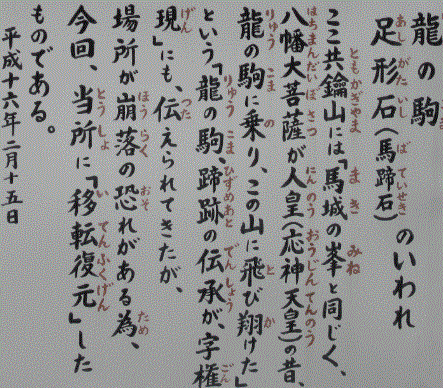 龍の駒
足形石（馬蹄石）のいわれ
ここ共鑰山には「馬城の峯と同じく、
八幡大菩薩が人皇（応神天皇）の昔、
龍の駒に乗り、この山に飛び翔けた」
という「龍の駒、蹄跡の伝承が、字権
現」にも、伝えられてきたが、
場所が崩落の恐れがある為、
今回、当所に「移転復元」した
ものである。
平成十六年二月十五日